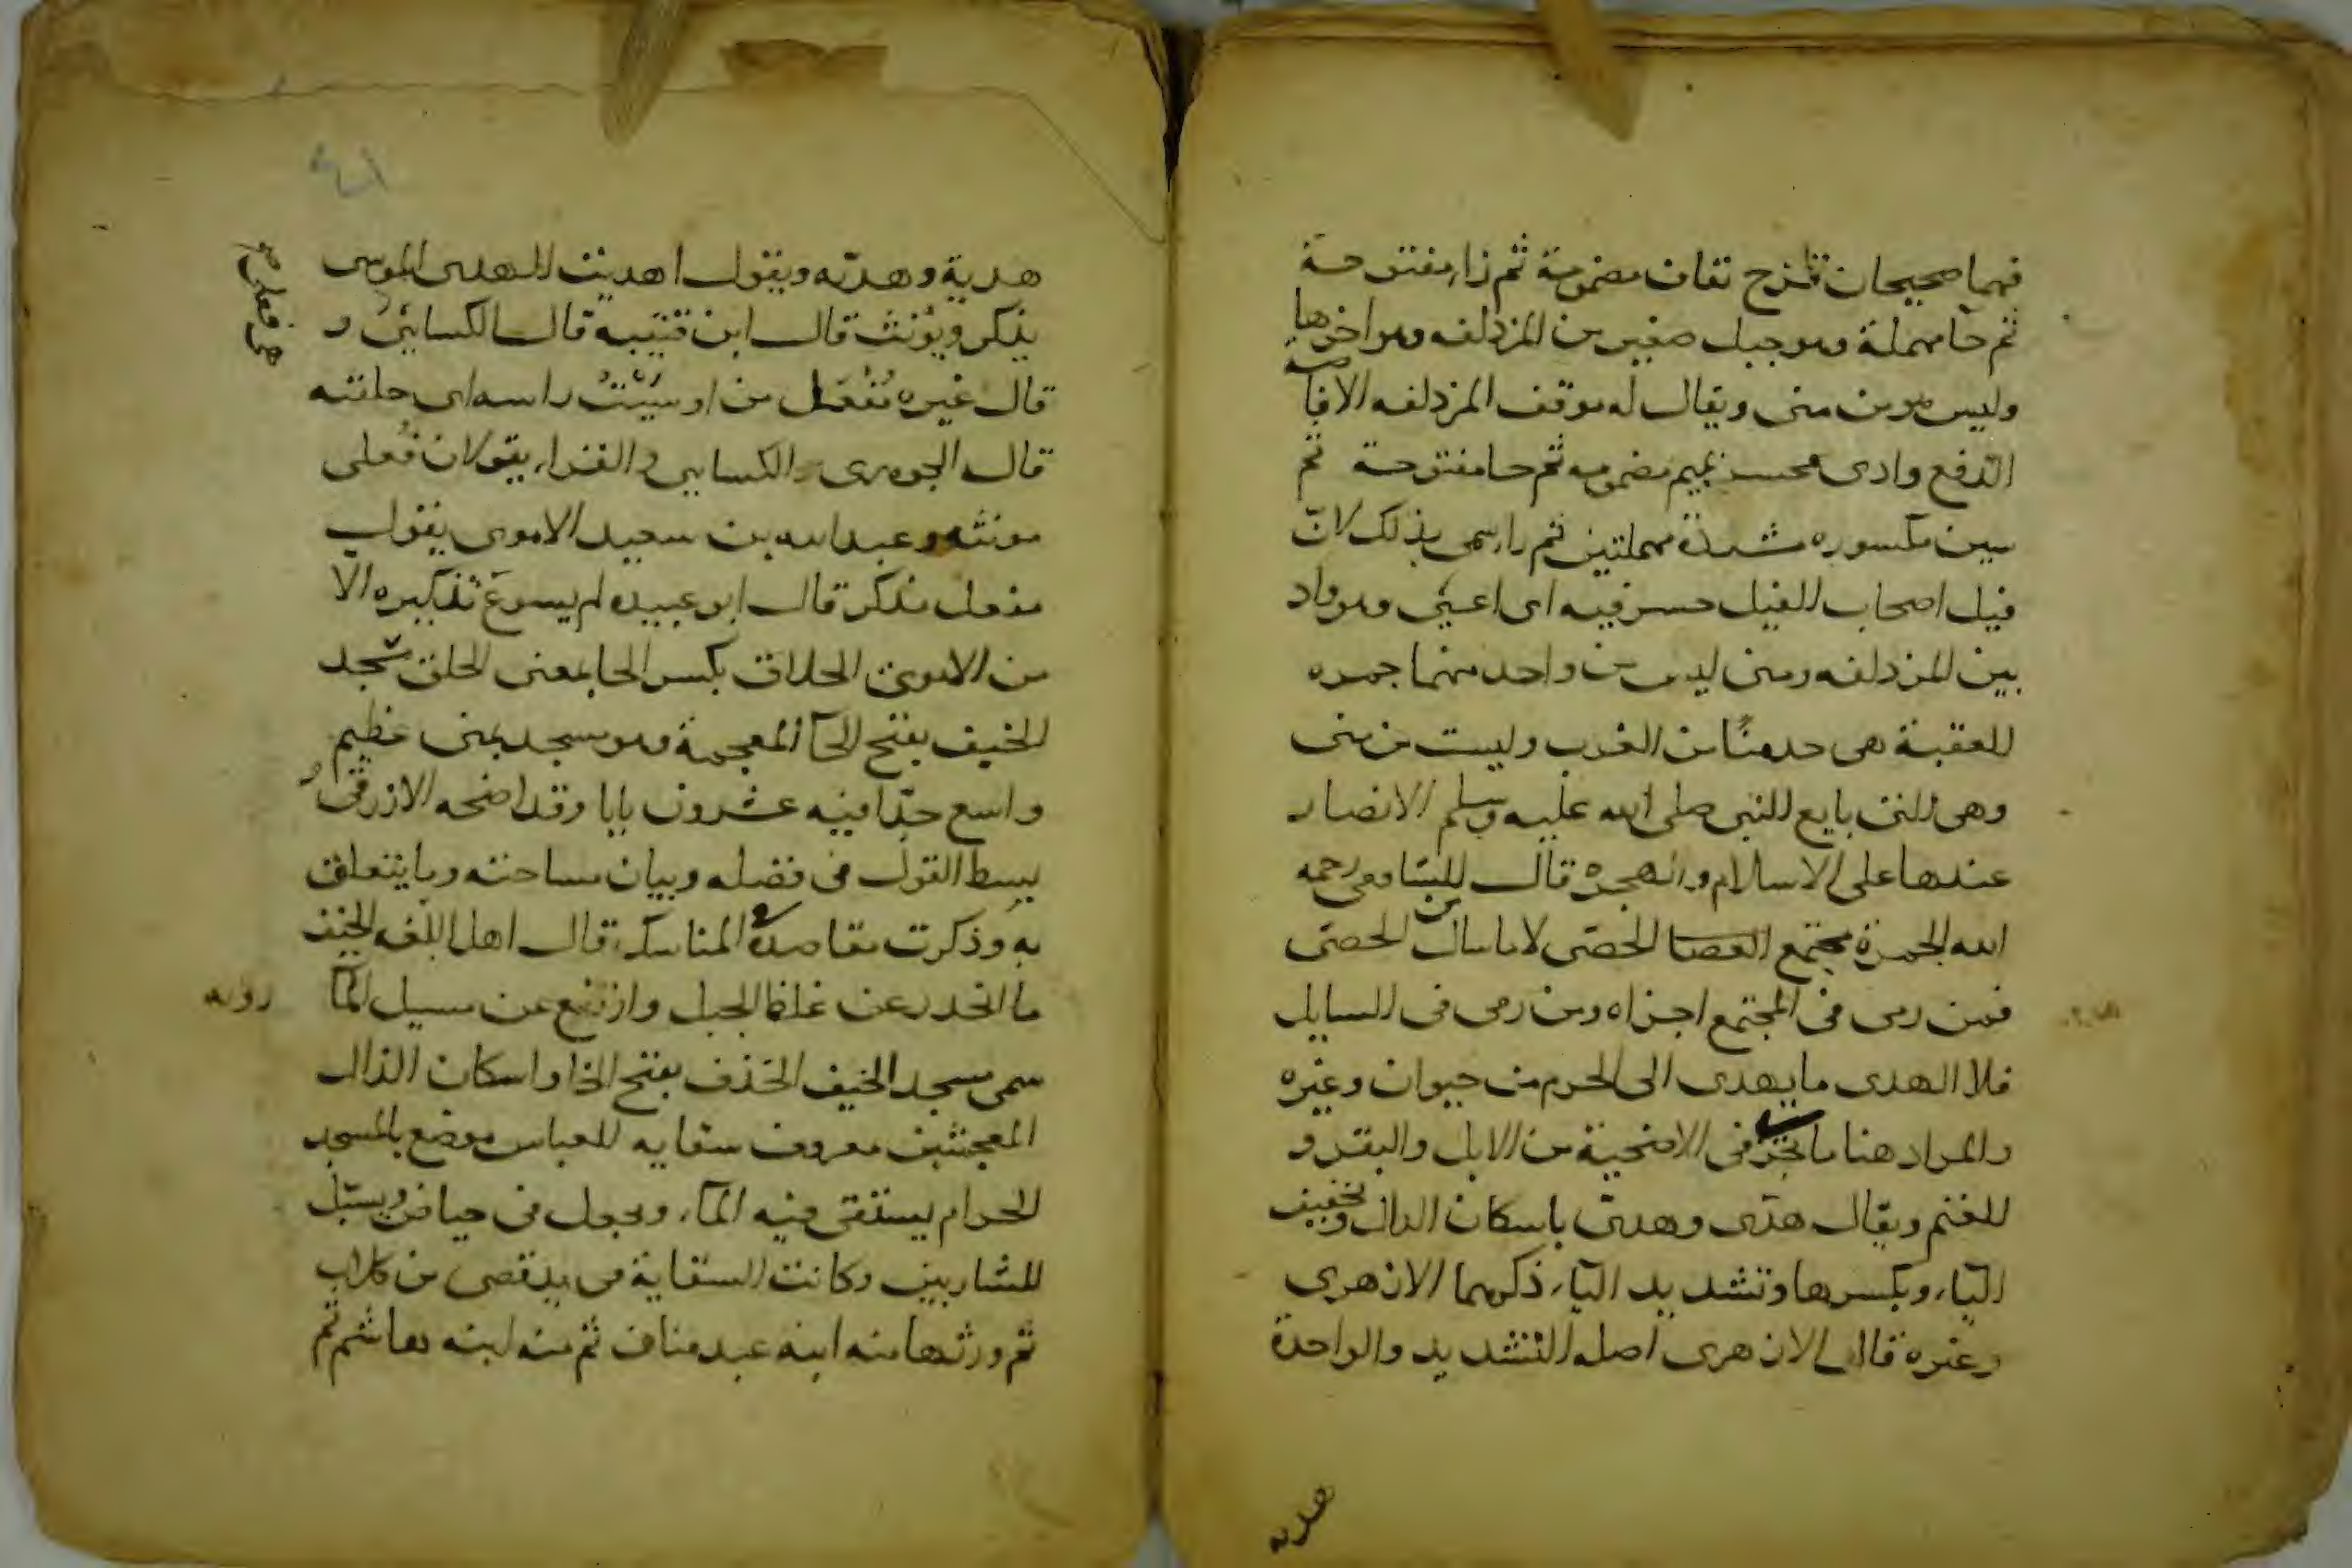 فهما صحيحان قزح بقاف مضمومة ثم زاء مفتوحة
ثم حا مهملة وهو جبل صغير من المزدلفه وهو اخرها
وليس هو من منى ويقال له موقف المزدلفه الافاضة
الدفع وادى محسر بميم مضمومه ثم حا مفتوحة ثم
سين مكسوره مشددة مهملتين ثم را سمى بذلك لان
فيل اصحاب الفيل حسر فيه اى اعيى وهو واد
بين المزدلفه ومنى ليس من واحد منهما جمره
العقبة هى حد منًا من الغرب وليست من منى
وهى التى بايع النبى صلى الله عليه وسلم الانصار
عندها على الاسلام والهجره قال الشافعى رحمه
الله الجمرة مجتمع الحصى لا ما سال من الحصى
فمن رمى فى المجتمع اجزاه ومن رمى فى السايل
فلا الهدى ما يهدى الى الحرم من حيوان وغيره
والمراد هنا ما يجزى فى الاضحية من الابل والبقر و
الغنم ويقال هدى وهدىّ باسكان الدال وتخفيف
اليا، وبكسرها وتشديد اليا، ذكرهما الازهرى
وغيره قال الازهرى اصله التشديد والواحدة
هديه
هدية وهديّه ويقول اهديت الهدى الموسى
يذكر ويؤنث قال ابن قتيبه قال الكسايى
هى فعلى و
قال غيره مُفْعَل من اوسَيْتُ راسه اى حلقته
قال الجوهرى الكسايى والفراء يقولان فُعلى
مونثه وعبدالله بن سعيد الاموى يقول
مفعل مذكر قال ابو عبيده لم يسوغ تذكيره الا
من الاموى الحلاق بكسر الحا بمعنى الحلق مسجد
الخيف بفتح الخآ المعجمة وهو مسجد بمنى عظيم
واسع جدّا فيه عشرون بابا وقد اوضحه الازرقى
ببسط القول فى فضله وبيان مساحته وما يتعلق
به وذكرت مقاصده فى المناسك، قال اهل اللغه الخيف
ما انحدر عن غلظ الجبل وارتفع عن مسيل المآ
وبه
سمى مسجد الخيف الخذف بفتح الخا واسكان الذال
المعجمتين معروف سقايه العباس موضع بالمسجد
الحرام يستقى فيه المآ، ويجعل فى حياض ويسبّل
للشاربين وكانت السقاية فى يد قصى من كلاب
ثم ورثها منه ابنه عبد مناف ثم منه ابنه هاشم ثم